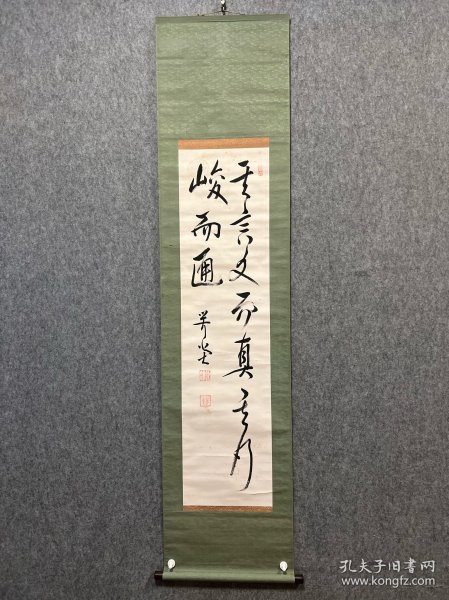 其言文而真其行
峻而通
孔夫子旧书网
www.kongfz.com